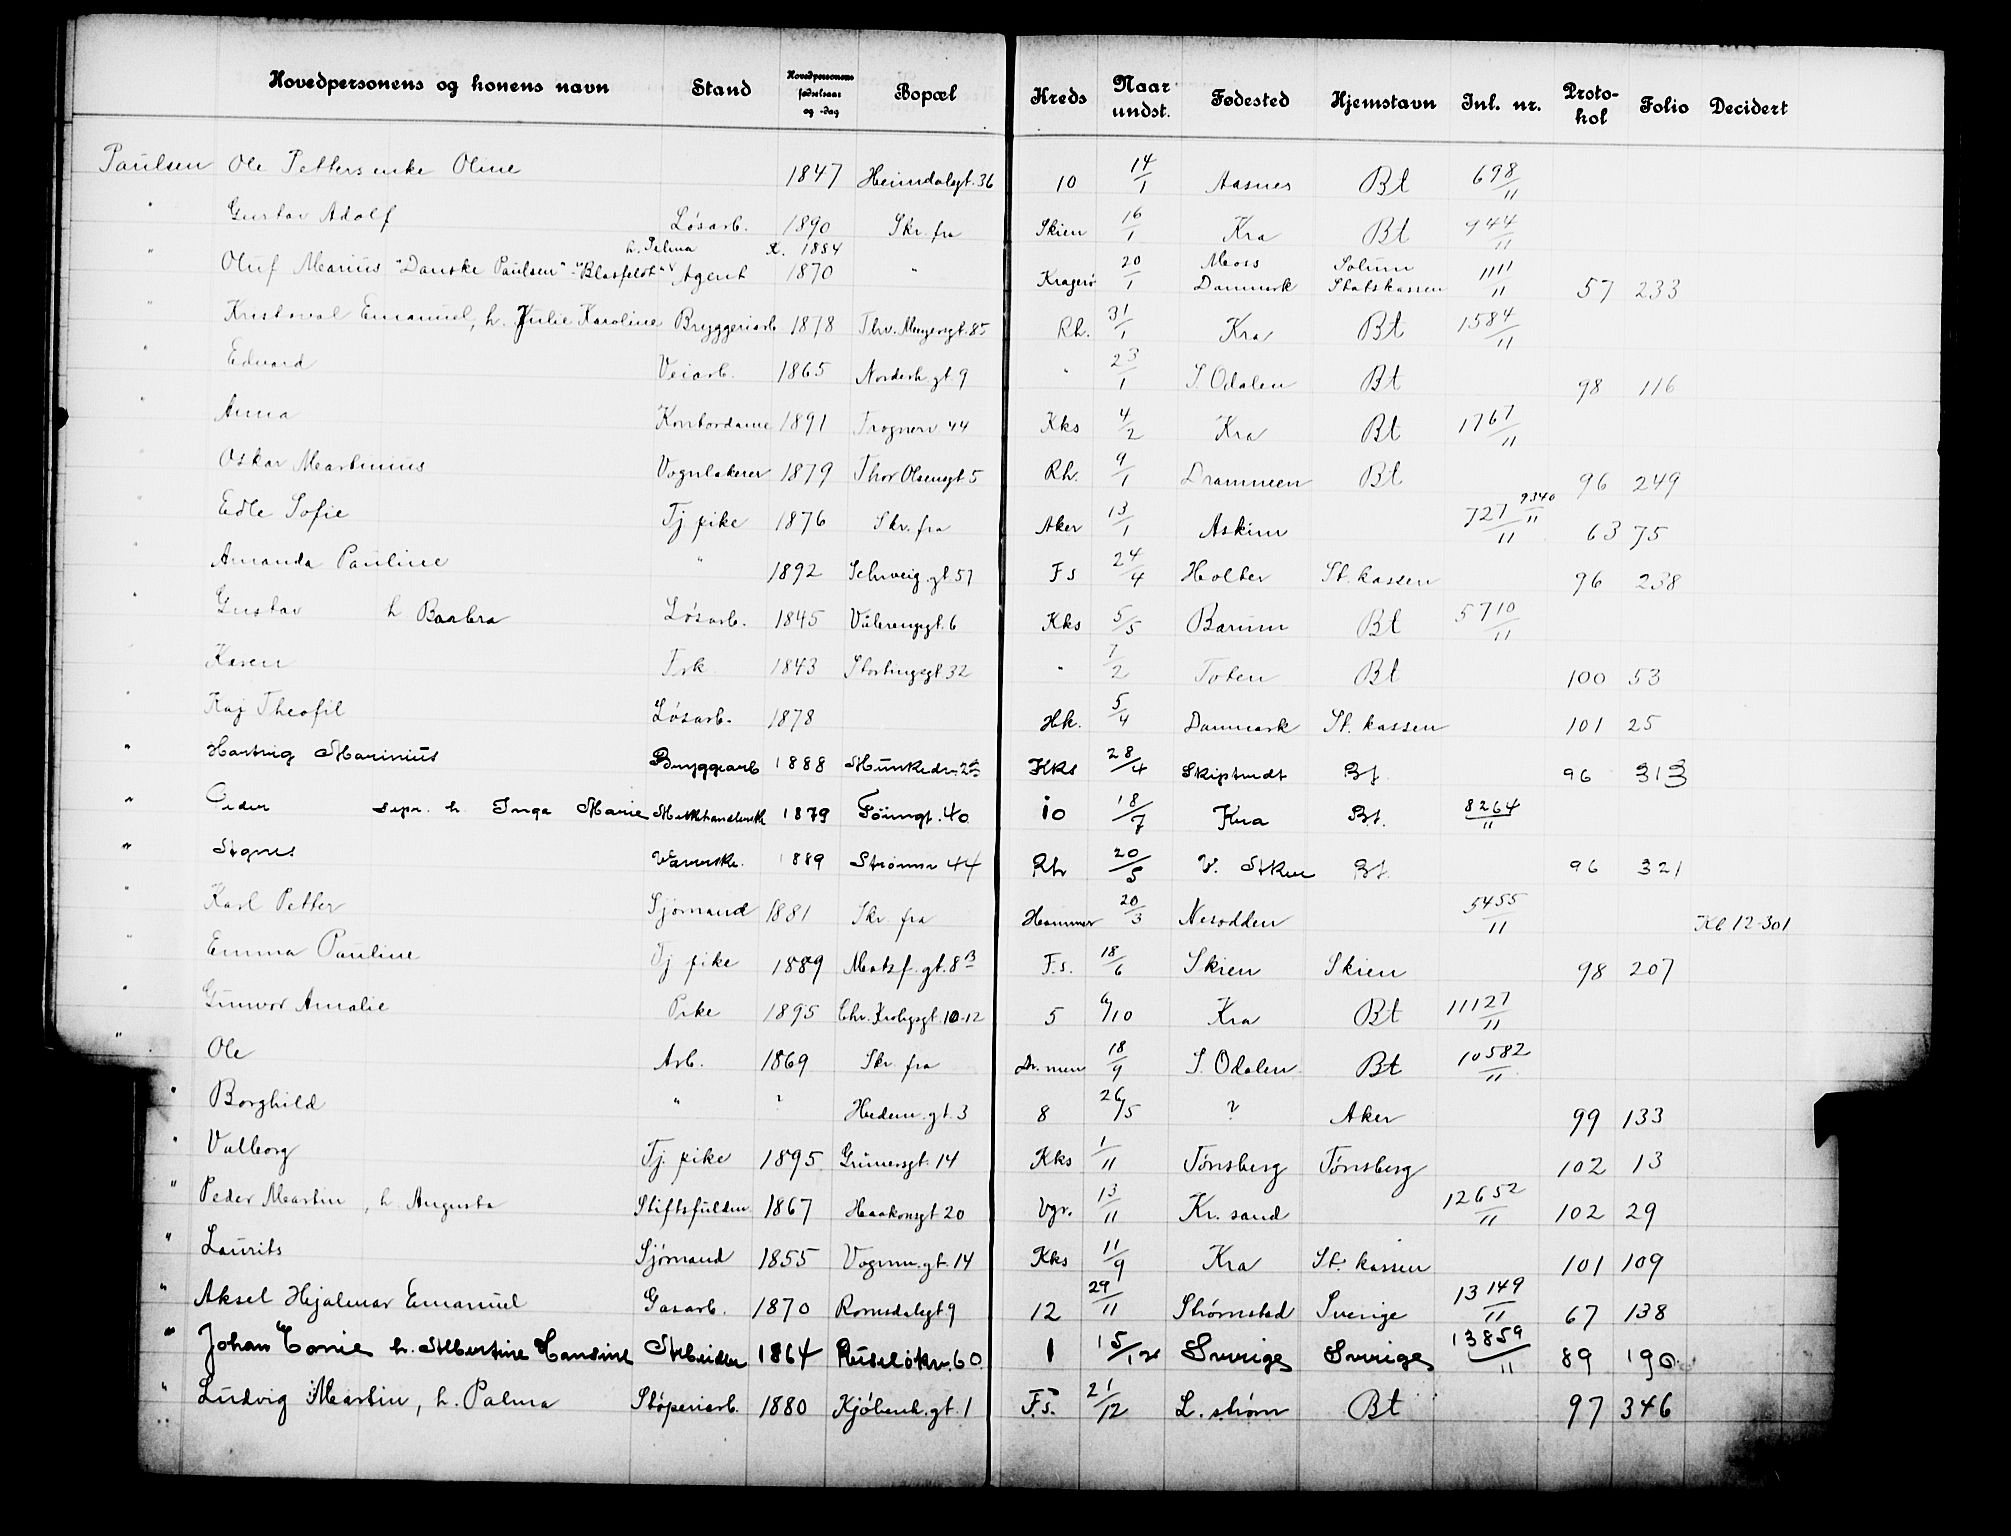 Hovedpersonens og konens navn Stand Hovedpersonens fødselsaar og -dag Bopæl Kreds Naar undst. Fødested Hjemstavn Inl. nr. Protokol Folio Decidert
Paulsen Ole Petters enke Oline 1847 Heimdalsgt. 36 10 14/1 Aasnes Bt 698/11
" Gustav Adolf Løsarb. 1890 Skr. fra Skien 16/1 Kra Bt 944/11
h. Pelma 1884 Moss Solum
" Oluf Marius "Danske Paulsen" - Agent 1870 " Kragerø 20/1 Danmark Statskassen 1111/11 57 233
" Emanuel, h. Julie Karoline Bryggeriarb 1878 Thv. Meyersgt. 85 Rh. 31/1 Kra Bt 1584/11
" Edvard Veiarb. 1865 Norderh. gt. 9 " 23/1 S. Odalen Bt 98 116
" Anna Kontordame 1891 Frognerv. 44 Kks 4/2 Kra Bt 1767/11
" Oskar Martinius Vognlakerer 1879 Thor Olsensgt. 5 Rh. 9/1 Drammen Bt 96 249
" Edle Sofie Tj. pike 1876 Skr. fra Aker 13/1 Askim 727/11 9340/11 63 75
" Amanda Pauline " 1892 Schweig. gt. 57 Fs 24/4 Holter St. kassen 96 238
" Gustav h Barbra Løsarb. 1845 Vålerenggt. 6 Kks 5/5 Bærum Bt 5710/11
Karen Frk. 1843 Stortingsgt. 32 " 7/2 Toten Bt 100 53
" Kaj Theofil Løsarb. 1878 Hk. 5/4 Danmark St. kassen 101 25
" Hartvig Marinius Bryggearb 1888 Munkedv. Kks 28/4 Skiptvedt Bt. 96 313
" Peder sepr. h. Inga Marie Melkhandlerske 1879 Føingt. 40 10 18/7 Kra Bt. 8264/11
" Agnes Væverske. 1889 Strømsv 44 Rh 20/5 V. Aker Bt. 96 321
" Karl Petter Sjømand 1881 Skr. fra Hammer 20/3 Nesodden 5455/11 Kb 12-301
" Emma Pauline Tj. pike 1889 Motzf. gt. 8 B F.s. 18/6 Skien Skien 98 207
" Gunvor Amalie Pike 1895 Chr. Krohgsgt. 10-12 5 6/10 Kra Bt 11127/11
" Ole Arb. 1869 Skr. fra Dr. men 18/9 S. Odalen Bt 10582/11
" Borghild " ? Hedem. gt. 3 8 26/5 ? Aker 99 133
" Valborg Tj. pike 1895 Grünersgt. 14 Kks 1/11 Tønsberg Tønsberg 102 13
" Peder Martin, h. Augusta Stiftsfuldm. 1867 Haakonsgt 20 Vgr. 13/11 Kr. sand 12652/11 102 29
" Laurits Sjømand 1855 Vognm. gt. 14 Kks 11/9 Kra St. kassen 101 109
" Aksel Hjalmar Emanuel Gasarb. 1870 Romsdalsgt 9 12 29/11 Strømstad Sverige 13149/11 67 138
" Johan h. Albertine Hansine Arbeider 1864 Ruseløkv. 60 1 15/12 Sverige Sverige 13859/11 89 190
" Ludvig Martin, h. Palma Støperiarb. 1880 Kjøbenh. gt. 1 F.s. 21/12 L. strøm Bt 97 346